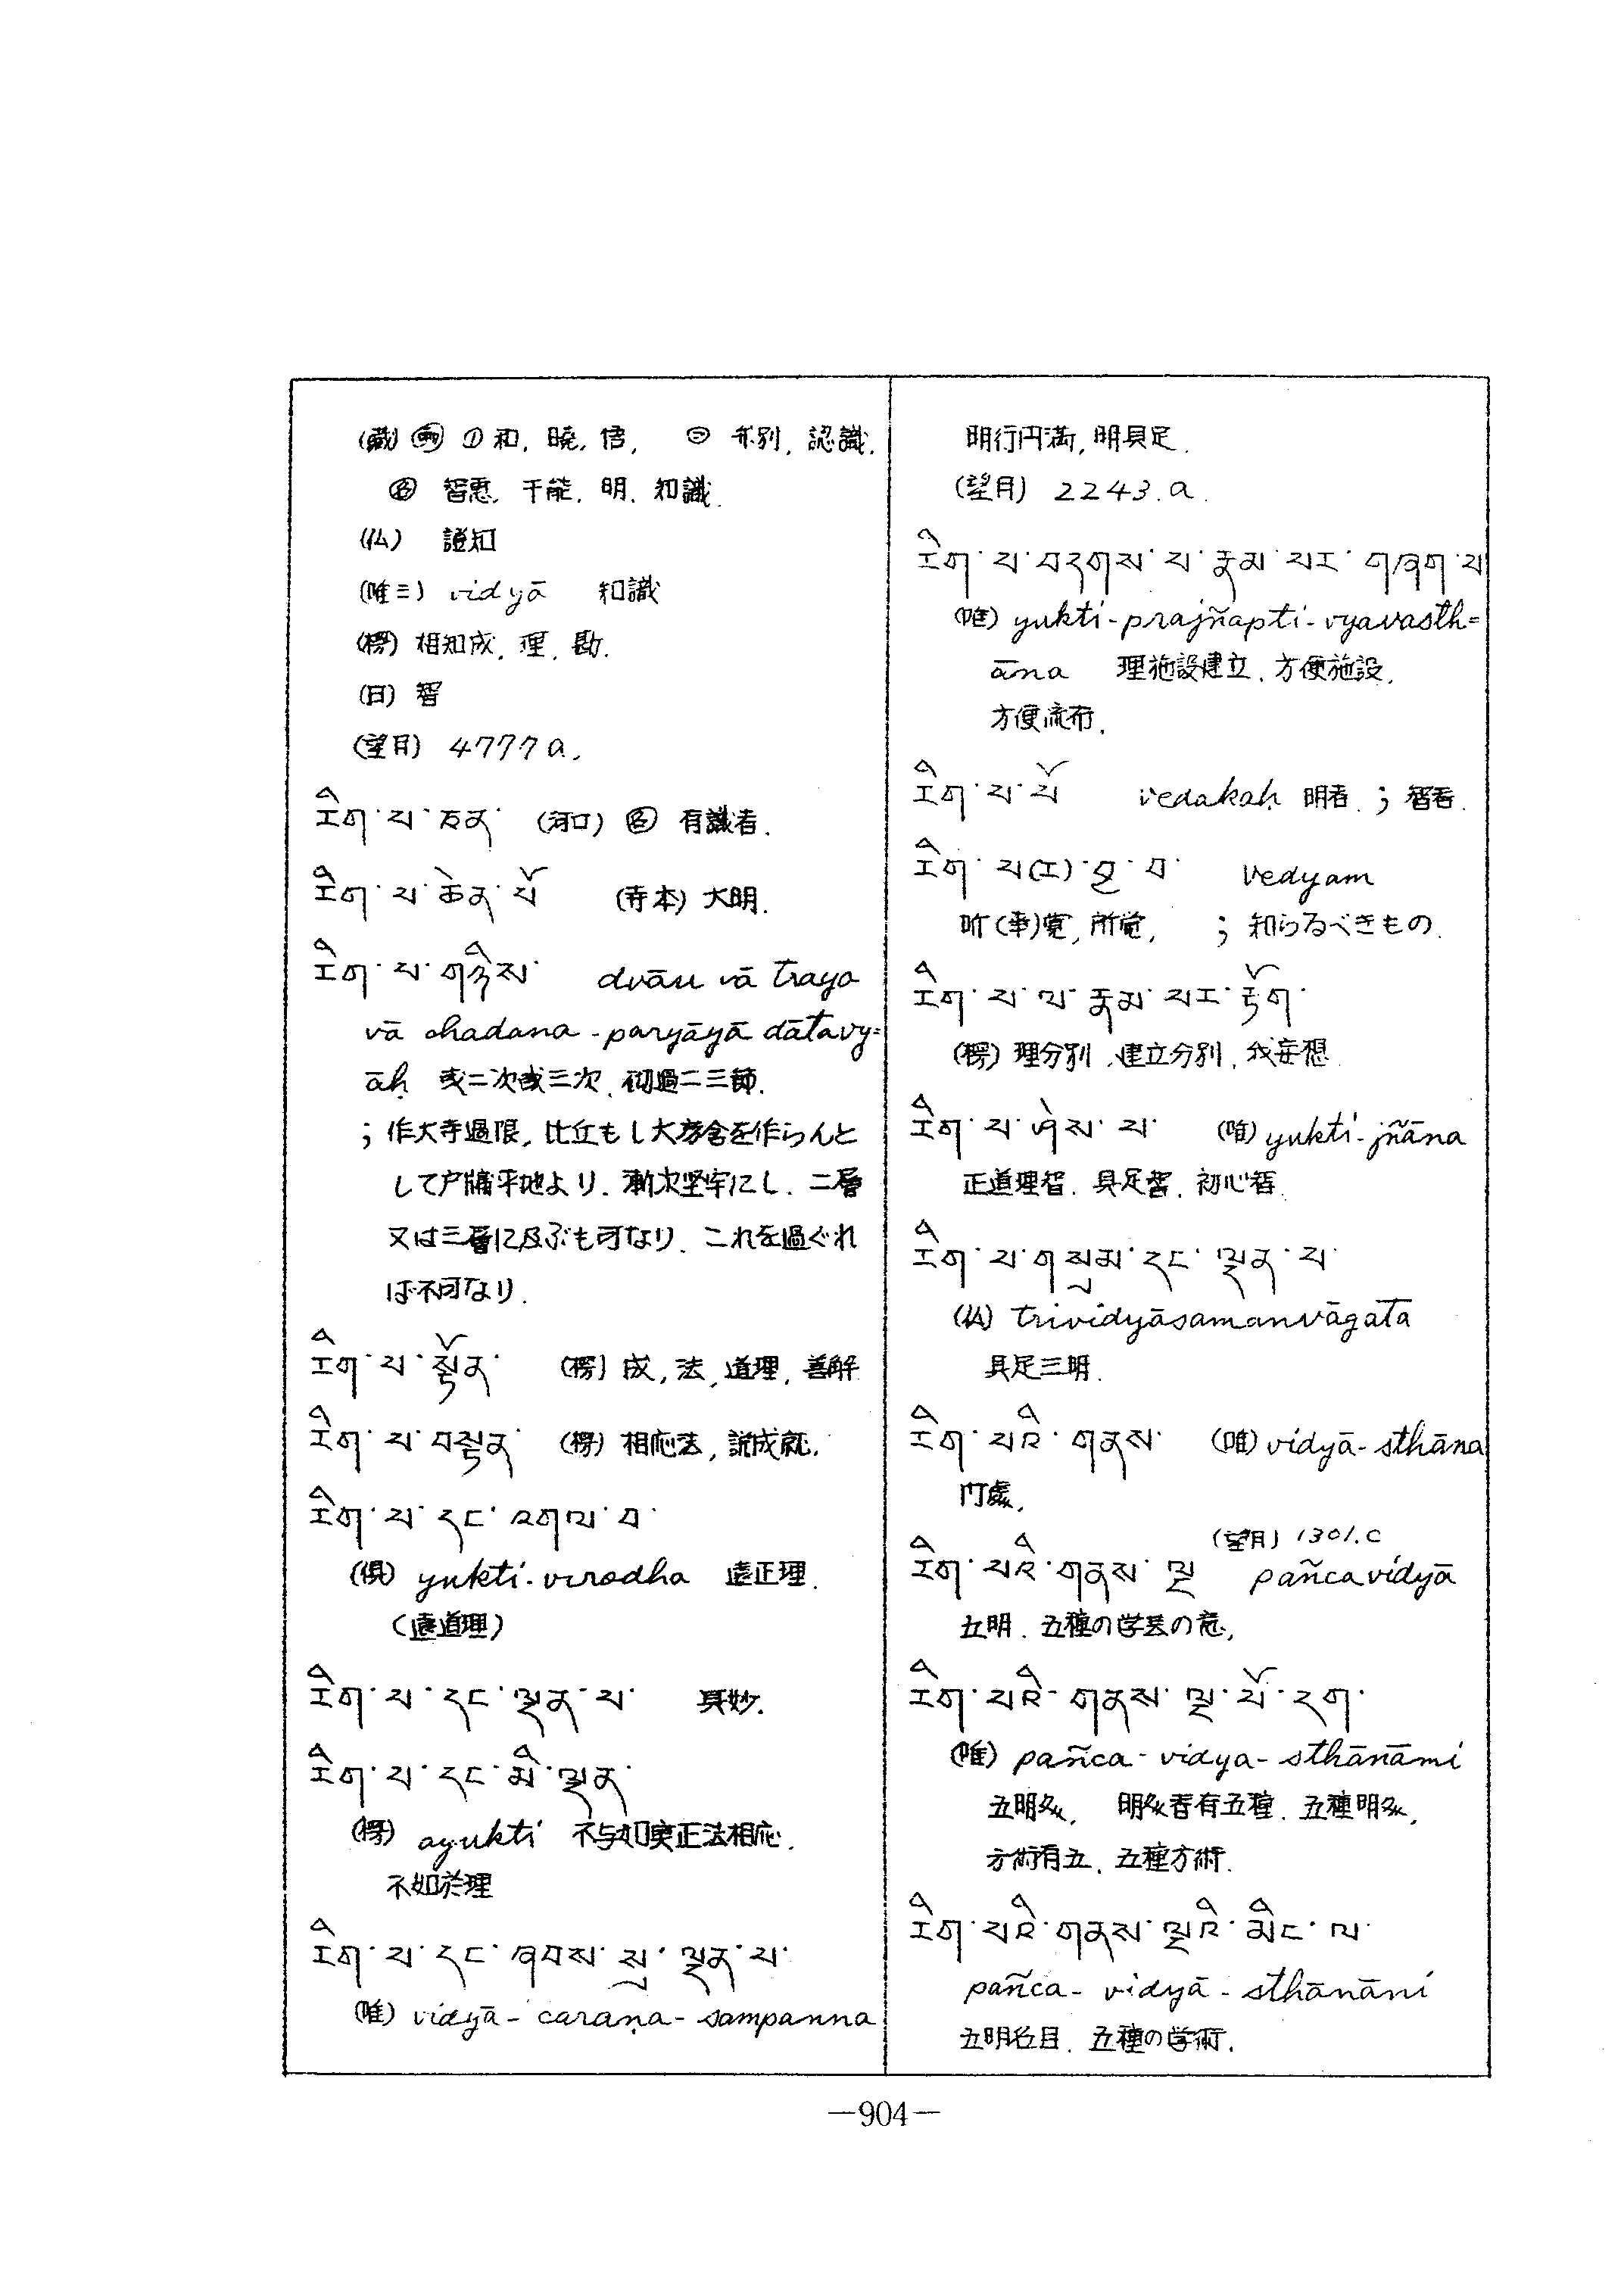 (蔵) ㊀ ① 知, 暁, 悟, ㊁ 弁別, 認識.
㊔ 智恵, 才能, 明, 知識.
(仏) 證知
(唯三) vidyā 知識
(楞) 相知成, 理, 勘.
(日) 智
(望月) 4777a.
རིག་པ་ཅན་ (河口) ㊔ 有識者.
རིག་པ་ཆེན་པོ (寺本) 大明.
རིག་པ་གཉིས་ dvāu vā trayo
vā chadana-paryāyā dātavy=
āḥ 或二次或三次, 初過二三節.
; 作大寺過限, 比丘もし大房舎を作らんと
して戸牖平地より, 漸次堅牢にし, 二層
又は三層に及ぶも可なり, これを過ぐれ
ば不可なり.
རིག་པ་སྟོན་ (楞) 成, 法, 道理, 善解
རིག་པ་བསྟན་ (楞) 相応法, 説成就.
རིག་པ་དང་འགལ་བ་
(倶) yukti-virodha 違正理.
(違道理)
རིག་པ་དང་ལྡན་པ་ 具妙.
རིག་པ་དང་མི་ལྡན་
(楞) ayukti 不与如実正法相応.
不如於理
རིག་པ་དང་ཞབས་སུ་ལྡན་པ་
(唯) vidyā-caraṇa-sampanna
明行円満, 明具足.
(望月) 2243.a.
རིག་པ་བདགས་པ་རྣམ་པར་གཞག་པ
(唯) yukti-prajñapti-vyavasth=
āna 理施設建立, 方便施設,
方便流布.
རིག་པ་པོ vedakaḥ 明者.; 智者.
རིག་པ(ར)་བྱ་བ་ vedyam
所(奉)覚, 所覚, ; 知らるべきもの.
རིག་པ་ལ་རྣམ་པར་རྟོག་
(楞) 理分別, 建立分別, 成妄想.
རིག་པ་ཤེས་པ་ (唯) yukti-jñāna
正道理智, 具足智, 初心智.
རིག་པ་གསུམ་དང་ལྡན་པ་
(仏) trividyāsamanvāgata
具足三明.
རིག་པའི་གནས་ (唯) vidyā-sthāna
明處.
(望月) 1301.c
རིག་པའི་གནས་ལྔ pañcavidyā
五明. 五種の学芸の意,
རིག་པའི་གནས་ལྔ་པོ་དག་
(唯) pañca-vidya-sthānāmi
五明処, 明処者有五種, 五種明処,
方術有五, 五種方術.
རིག་པའི་གནས་ལྔའི་མིང་ལ་
pañca-vidyā-sthānāni
五明名目. 五種の学術.
—904—